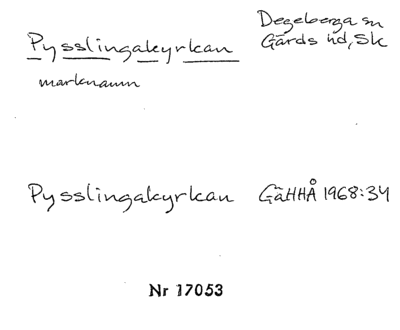 Pysslingakyrkan
Degeberga sn
Gärds hd, Sk
marknamn
Pysslingakyrkan GäHHÅ 1968:34
Nr 17053